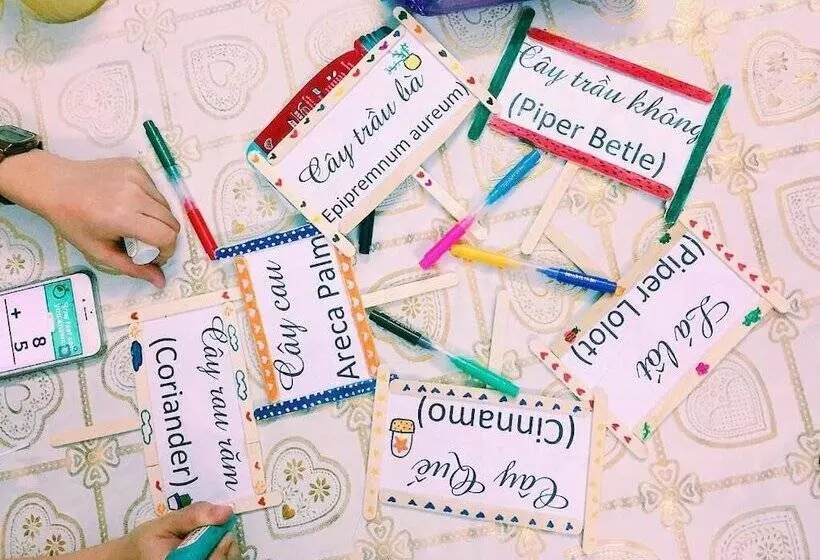 Cây trầu bà
Epipremnum aureum)
Cây trầu không
(Piper Betle)
Cây cau
Areca Palm
Lá lốt
(Piper Lolot)
Cây rau răm
(Coriander)
Cây Quế
(Cinnamo)
8
+
5